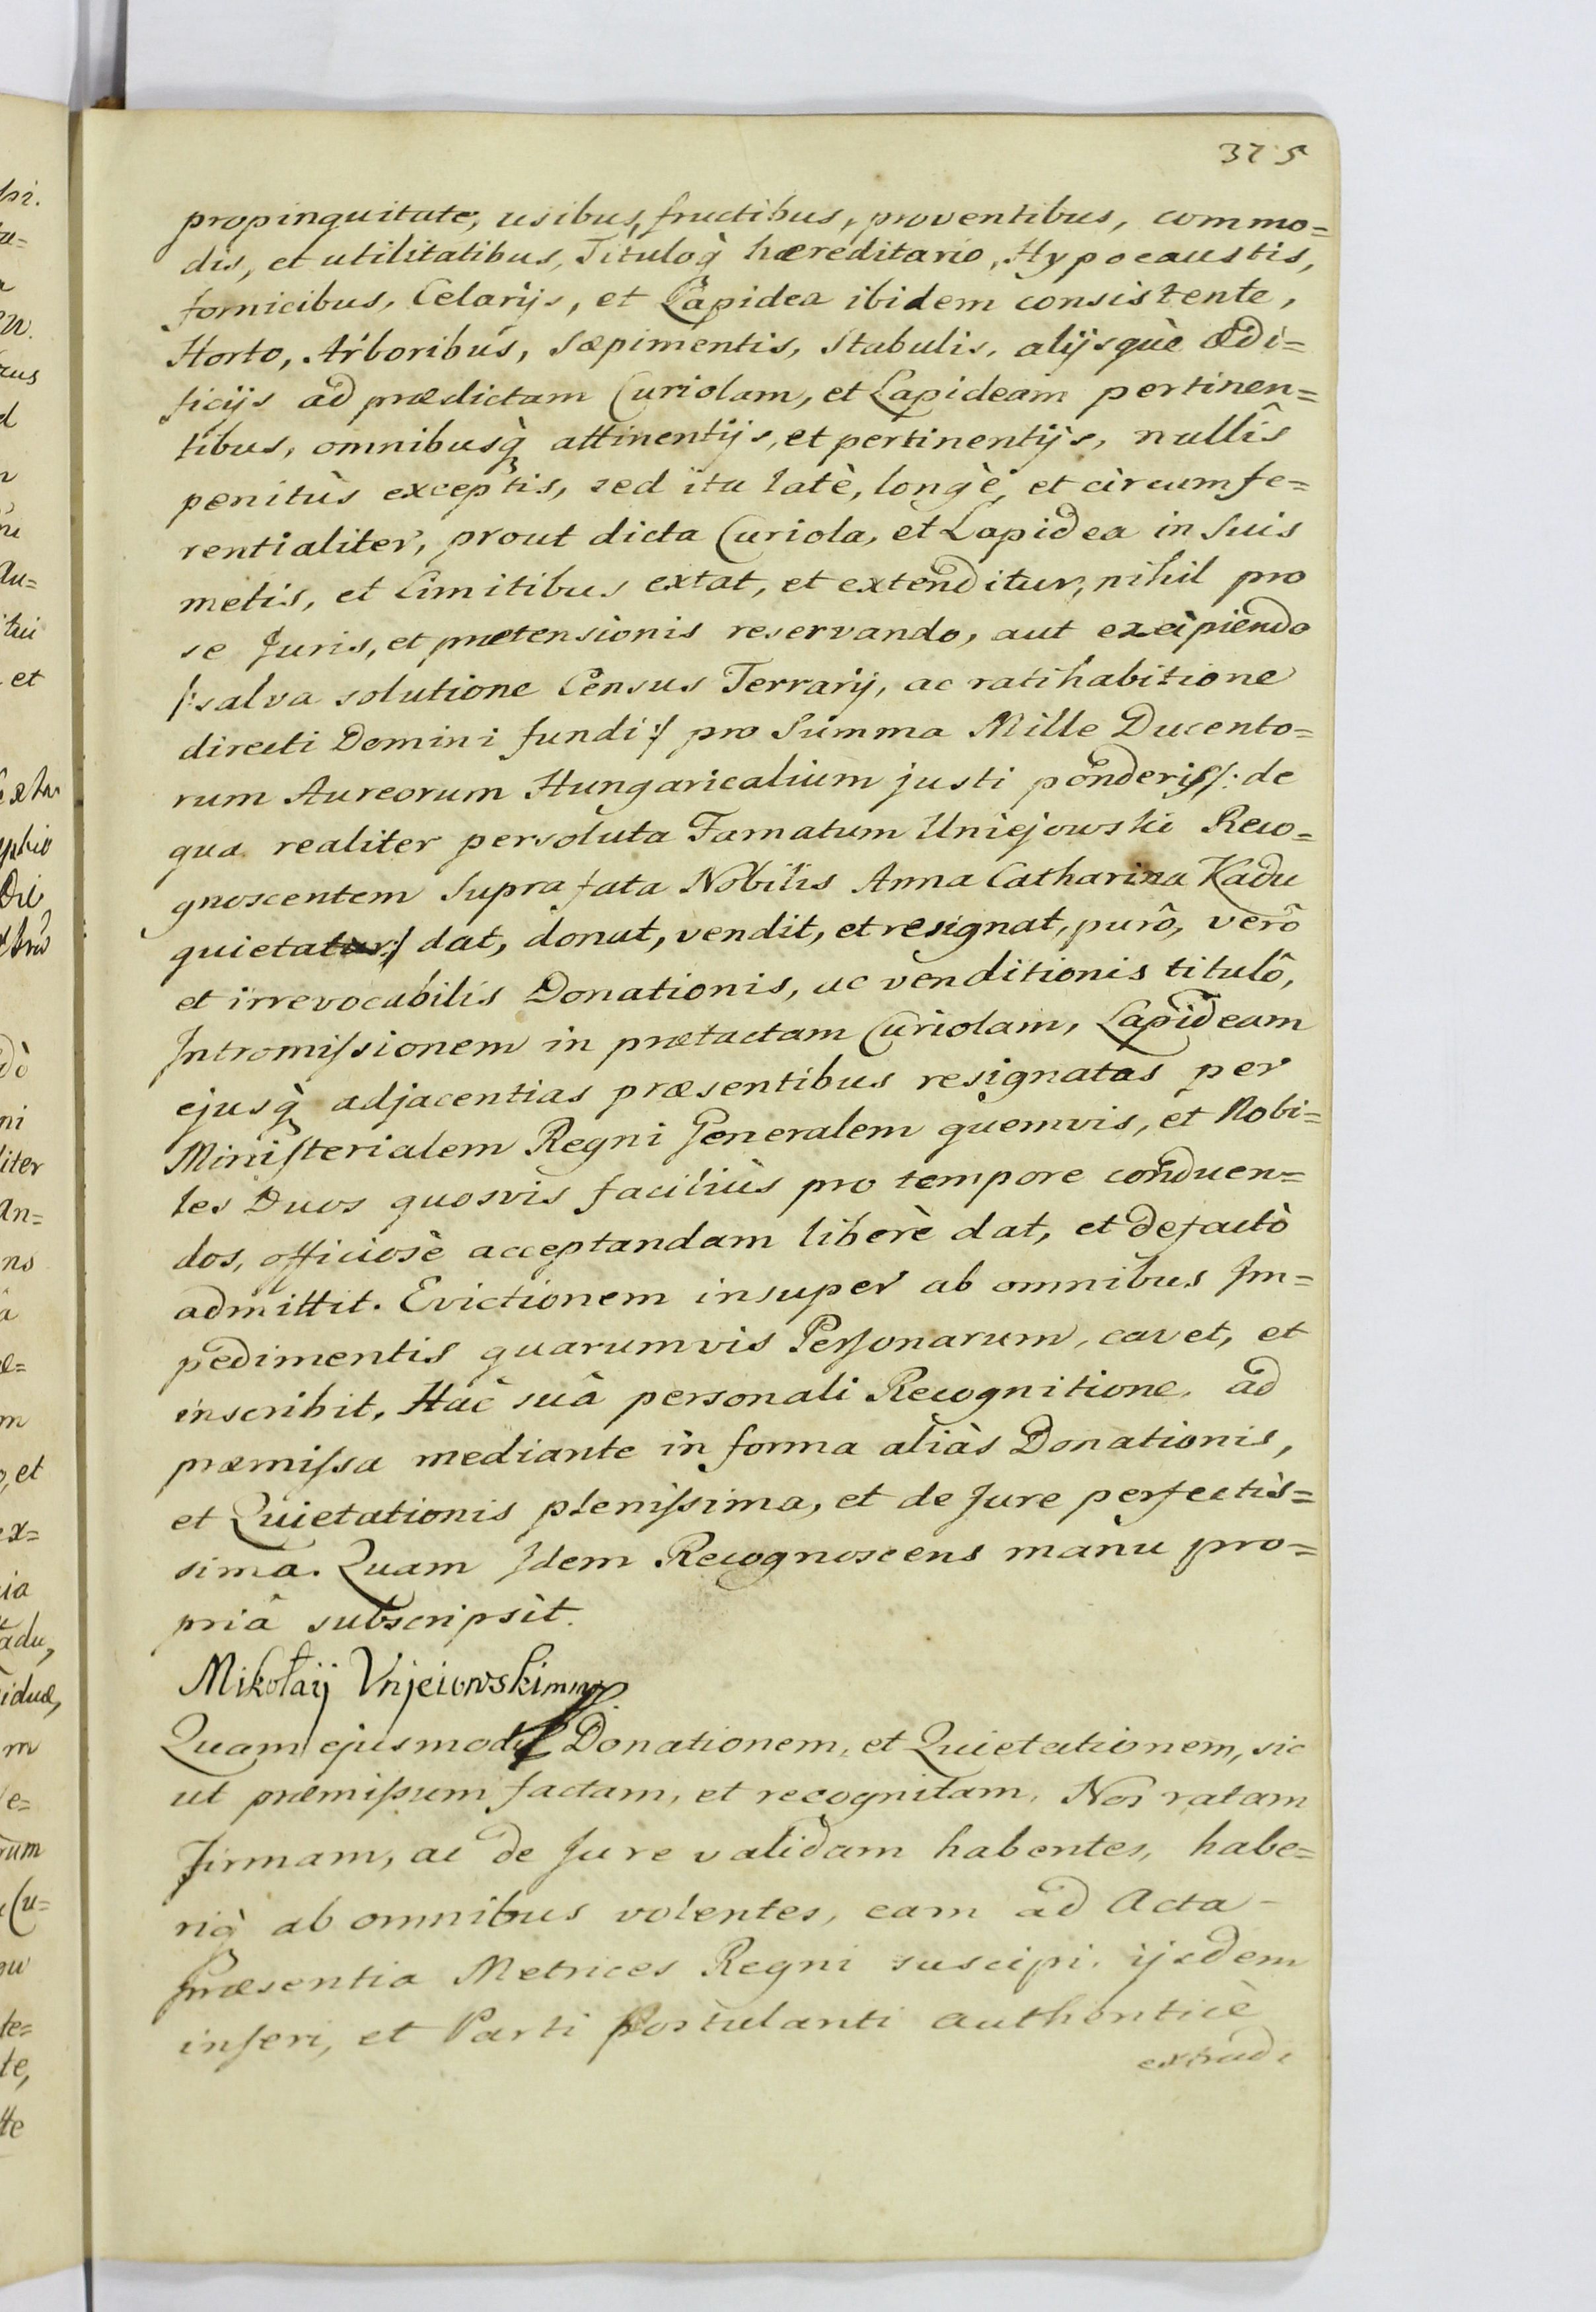 375
propinquitate, usibus, fructibus, proventibus, commo=
dis, et utilitatibus, Tituloq̀ hæreditario, Hypocaustis,
fornicibus, Celarijs, et Lapidea ibidem consistente,
Horto, Arboribus, Sæpimentis, Stabulis, alijsquè ædi=
ficijs ad prædictam Curiolam, et Lapideam pertinen=
tibus, omnibusq̀ attinentijs, et pertinentijs, nullîs
penitùs exceptis, sed ita latè, longè, et circumfe=
rentialiter, prout dicta Curiola, et Lapidea in suis
metis, et Limitibus extat, et extenditur, nihil pro
se Juris, et prætensionis reservando, aut excipiendo
/:salva solutione Census Terrarij, ac ratihabitione
directi Domini fundi:/ pro Summa Mille Ducento=
rum Aureorum Hungaricalium justi ponderis /: de
qua realiter persoluta Famatum Uniejowski Reco=
gnoscentem Suprafata Nobilis Anna Catharina Kadu
quietatur:/ dat, donat, vendit, et resignat, purô, verô
et irrevocabilis Donationis, ac venditionis titulô,
Intromissionem in prætactam Curiolam, Lapideam
ejusq̀ adjacentias præsentibus resignatas per
Ministerialem Regni Generalem quemvis, et Nobi=
les Duos quosvis faciliùs pro tempore conducen=
dos, officiosè acceptandam liberè dat, et defactò
admittit. Evictionem insuper ab omnibus Im=
pedimentis quarumvis Personarum, cavet, et
inscribit, Hac suâ personali Recognitione, ad
præmissa mediante in forma aliàs Donationis,
et Quietationis plenissima, et de Jure perfectis=
sima. Quam Idem Recognoscens manu pro=
priâ subscripsit.
Mikołaij Vnjeiowski mmp.
Quam ejusmodi Donationem, et Quietationem, sic
ut præmissum factam, et recognitam, Nos ratam
firmam, ac de Jure validam habentes, habe=
riq̀ ab omnibus volentes, eam ad Acta
Præsentia Metrices Regni suscipi, ijsdem
inseri, et Parti Postulanti authenticè
extradi